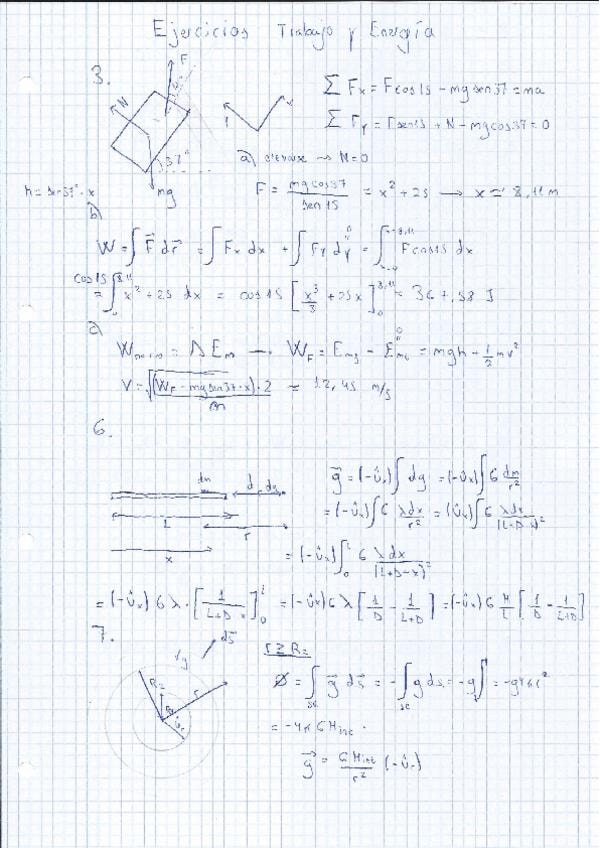 Ejercicios Trabajo y Energía
3.
F
N
37°
mg
∑ Fx = Fcos15 - mgsen37 = ma
∑ Fy = Fsen15 + N - mgcos37 = 0
a) elevarse → N=0
h = sen37° · x
F = mgcos37 / sen15 = x² + 25 → x ≈ 8,11 m
b)
W = ∫ F⃗ dr⃗ = ∫ Fx dx + ∫ Fy dy = ∫ Fcos15 dx
= cos15 ∫₀^8,11 x² + 25 dx = cos15 [x³/3 + 25x]₀^8,11 = 367,58 J
W = ΔEm → W_F = Em_f - Em_0 = mgh - ½ mv²
V = √((W_F - mgsen37·x)·2 / m) = 12,45 m/s
6.
dm
d
L
r
x
g⃗ = (-ûx) ∫ dg = (-ûx) ∫ G dm/r²
= (-ûx) ∫ G λdx/r² = (ûx) ∫ G λdx/(L+D-x)²
= (-ûx) ∫₀^L G λdx/(L+D-x)²
= (-ûx) G λ · [1/(L+D-x)]₀^L = (-ûx) G λ [1/D - 1/(L+D)] = (-ûx) G M/L [1/D - 1/(L+D)]
7.
ds⃗
g
R₂
r
r ≥ R₂
Ø = ∫ g⃗ ds⃗ = -∫ g ds = -g ∫ = -g4πr²
= -4π G M_int.
g⃗ = G M_int / r² (-ûr)